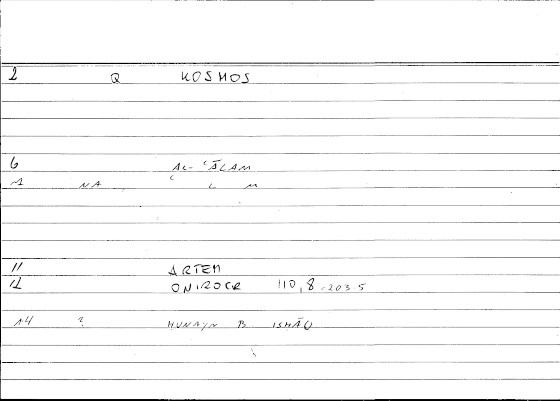 2 Q KOSMOS
6 AL- ʿĀLAM
NA
11 ARTEM
12 ONIROCR 110,8
14 ? HUNAYN B. ISHĀQ